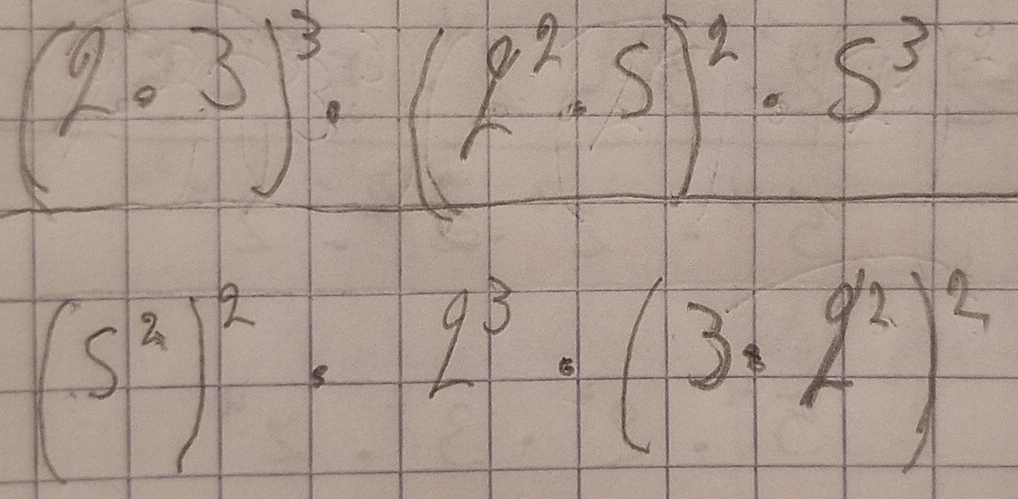 (2 · 3)³ · (2² · 5)² · 5³
(5²)² · 2³ · (3 · 2²)²